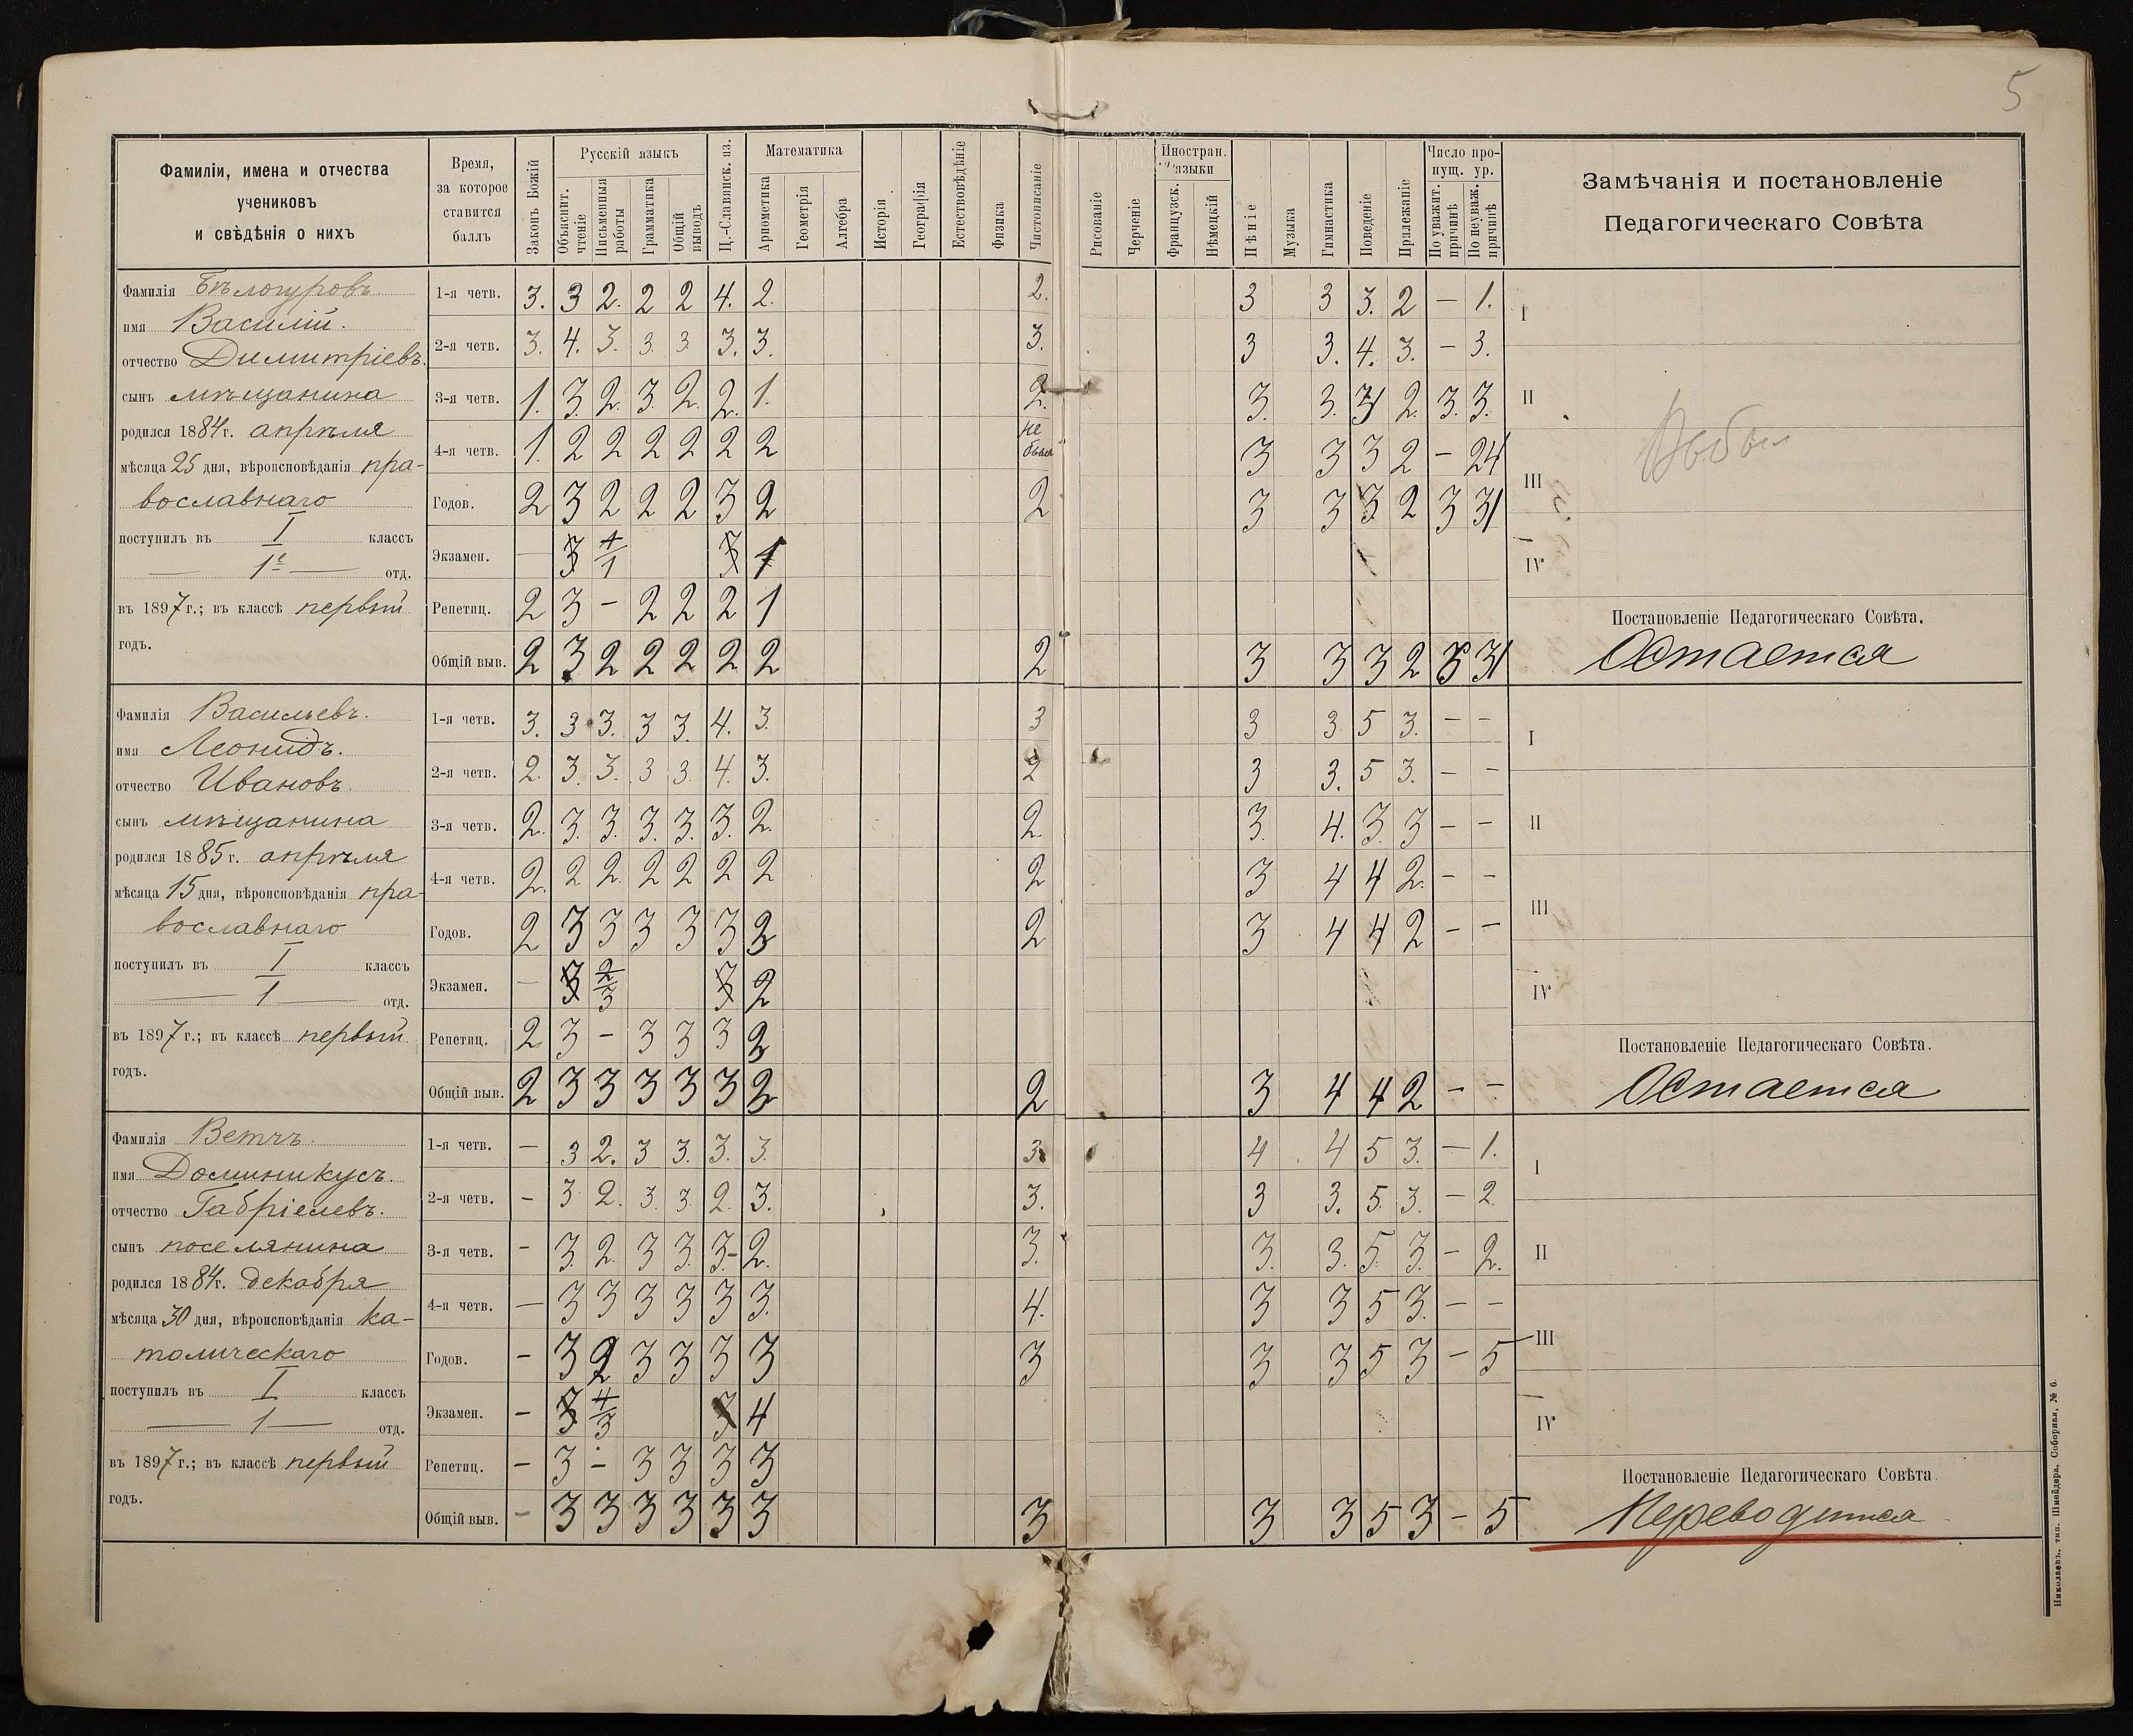 5
Фамиліи, имена и отчества
учениковъ
и свѣдѣнія о нихъ
Время,
за которое
ставится
баллъ
Законъ Божій
Русскій языкъ
Объяснит. чтеніе
Письменныя работы
Грамматика
Общій выводъ
Ц.-Славянск. яз.
Математика
Ариѳметика
Геометрія
Алгебра
Исторія
Географія
Естествовѣдѣніе
Физика
Чистописаніе
Рисованіе
Черченіе
Иностран. языки
Французск.
Нѣмецкій
Пѣніе
Музыка
Гимнастика
Поведеніе
Прилежаніе
Число пропущ. ур.
По уважит. причинѣ
По неуваж. причинѣ
Замѣчанія и постановленіе
Педагогическаго Совѣта
Фамилія Бѣлогуровъ.
имя Василій.
отчество Димитріевъ.
сынъ мѣщанина
родился 1884 г. апрѣля
мѣсяца 25 дня, вѣроисповѣданія пра-
вославнаго
поступилъ въ I классъ
— 1е — отд.
въ 1897 г.; въ классѣ первый
годъ.
1-я четв. 3. 3 2. 2 2 4. 2. 2. 3 3 3. 2 — 1.
2-я четв. 3. 4. 3. 3. 3. 3. 3. 3. 3 3. 4. 3. — 3.
3-я четв. 1. 3. 2. 3. 2. 2. 1. 2. 3. 3. 3 2. 3. 3.
4-я четв. 1. 2 2 2 2 2 2 не был 3 3 3 2 — 24
Годов. 2 3 2 2 2 3 2 2 3 3 3 2 3 31
Экзамен. — 3 4/1 3 1
Репетиц. 2 3 — 2 2 2 1
Общій выв. 2 3 2 2 2 2 2 2 3 3 3 2 3 31
I
II
III
IV
Выбыл
Постановленіе Педагогическаго Совѣта.
Остается
Фамилія Васильевъ.
имя Леонидъ.
отчество Ивановъ.
сынъ мѣщанина
родился 1885 г. апрѣля
мѣсяца 15 дня, вѣроисповѣданія пра-
вославнаго
поступилъ въ I классъ
— 1 — отд.
въ 1897 г.; въ классѣ первый
годъ.
1-я четв. 3. 3 3. 3 3. 4. 3. 3 3 3 5 3. — —
2-я четв. 2. 3. 3. 3 3. 4. 3. 2 3 3. 5 3. — —
3-я четв. 2. 3. 3. 3. 3. 3. 2. 2. 3. 4. 3. 3 — —
4-я четв. 2. 2 2. 2 2 2 2 2 3 4 4 2. — —
Годов. 2 3 3 3 3 3 2 2 3 4 4 2 — —
Экзамен. — 3 2/3 3 2
Репетиц. 2 3 — 3 3 3 2
Общій выв. 2 3 3 3 3 3 2 2 3 4 4 2 — —
I
II
III
IV
Постановленіе Педагогическаго Совѣта.
Остается
Фамилія Ветчъ.
имя Доминикусъ.
отчество Габріелевъ.
сынъ поселянина
родился 1884 г. декабря
мѣсяца 30 дня, вѣроисповѣданія ка-
толическаго
поступилъ въ I классъ
— 1 — отд.
въ 1897 г.; въ классѣ первый
годъ.
1-я четв. — 3 2. 3 3. 3. 3. 3. 4 4 5 3. — 1.
2-я четв. — 3 2. 3. 3. 2. 3. 3. 3 3. 5. 3. — 2
3-я четв. — 3. 2. 3 3. 3- 2. 3. 3. 3. 5. 3. — 2.
4-я четв. — 3 3 3 3 3 3. 4. 3 3 5 3. — —
Годов. — 3 2 3 3 3 3 3 3 3 5 3 — 5
Экзамен. — 3 4/3 3 4
Репетиц. — 3 — 3 3 3 3
Общій выв. — 3 3 3 3 3 3 3 3 3 5 3 — 5
I
II
III
IV
Постановленіе Педагогическаго Совѣта
Переводится
Николаевъ, тип. Шнейдера, Соборная, № 6.